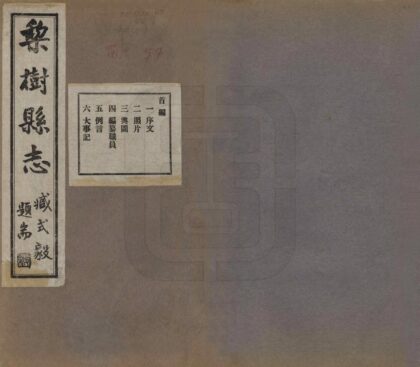 梨樹縣志
臧式毅
題耑
首編
一序文
二照片
三輿圖
四編纂職員
五例言
六大事記